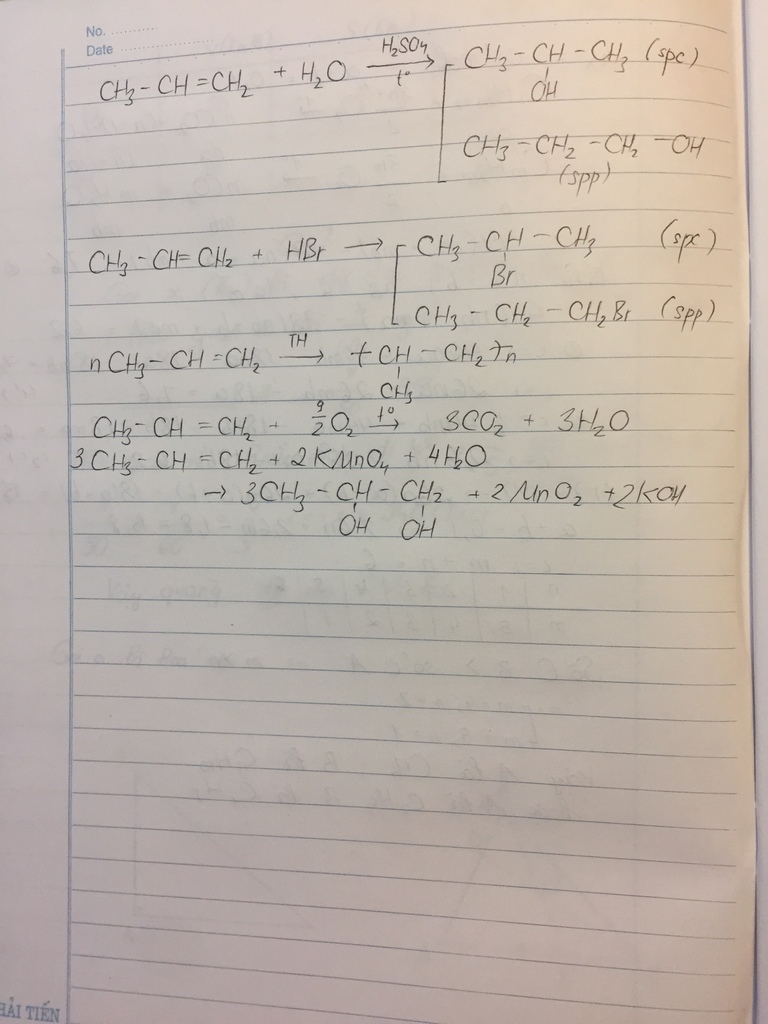 No. ............
Date ........................
CH3 - CH = CH2 + H2O \xrightarrow[t°]{H2SO4} [ CH3 - CH - CH3 (spc)
OH
CH3 - CH2 - CH2 - OH
(spp)
CH3 - CH = CH2 + HBr → [ CH3 - CH - CH3 (spc)
Br
CH3 - CH2 - CH2Br (spp)
nCH3 - CH = CH2 \xrightarrow{TH} (CH - CH2)n
CH3
CH3 - CH = CH2 + 9/2 O2 \xrightarrow{t°} 3CO2 + 3H2O
3CH3 - CH = CH2 + 2KMnO4 + 4H2O
→ 3CH3 - CH - CH2 + 2MnO2 + 2KOH
OH OH
HẢI TIẾN